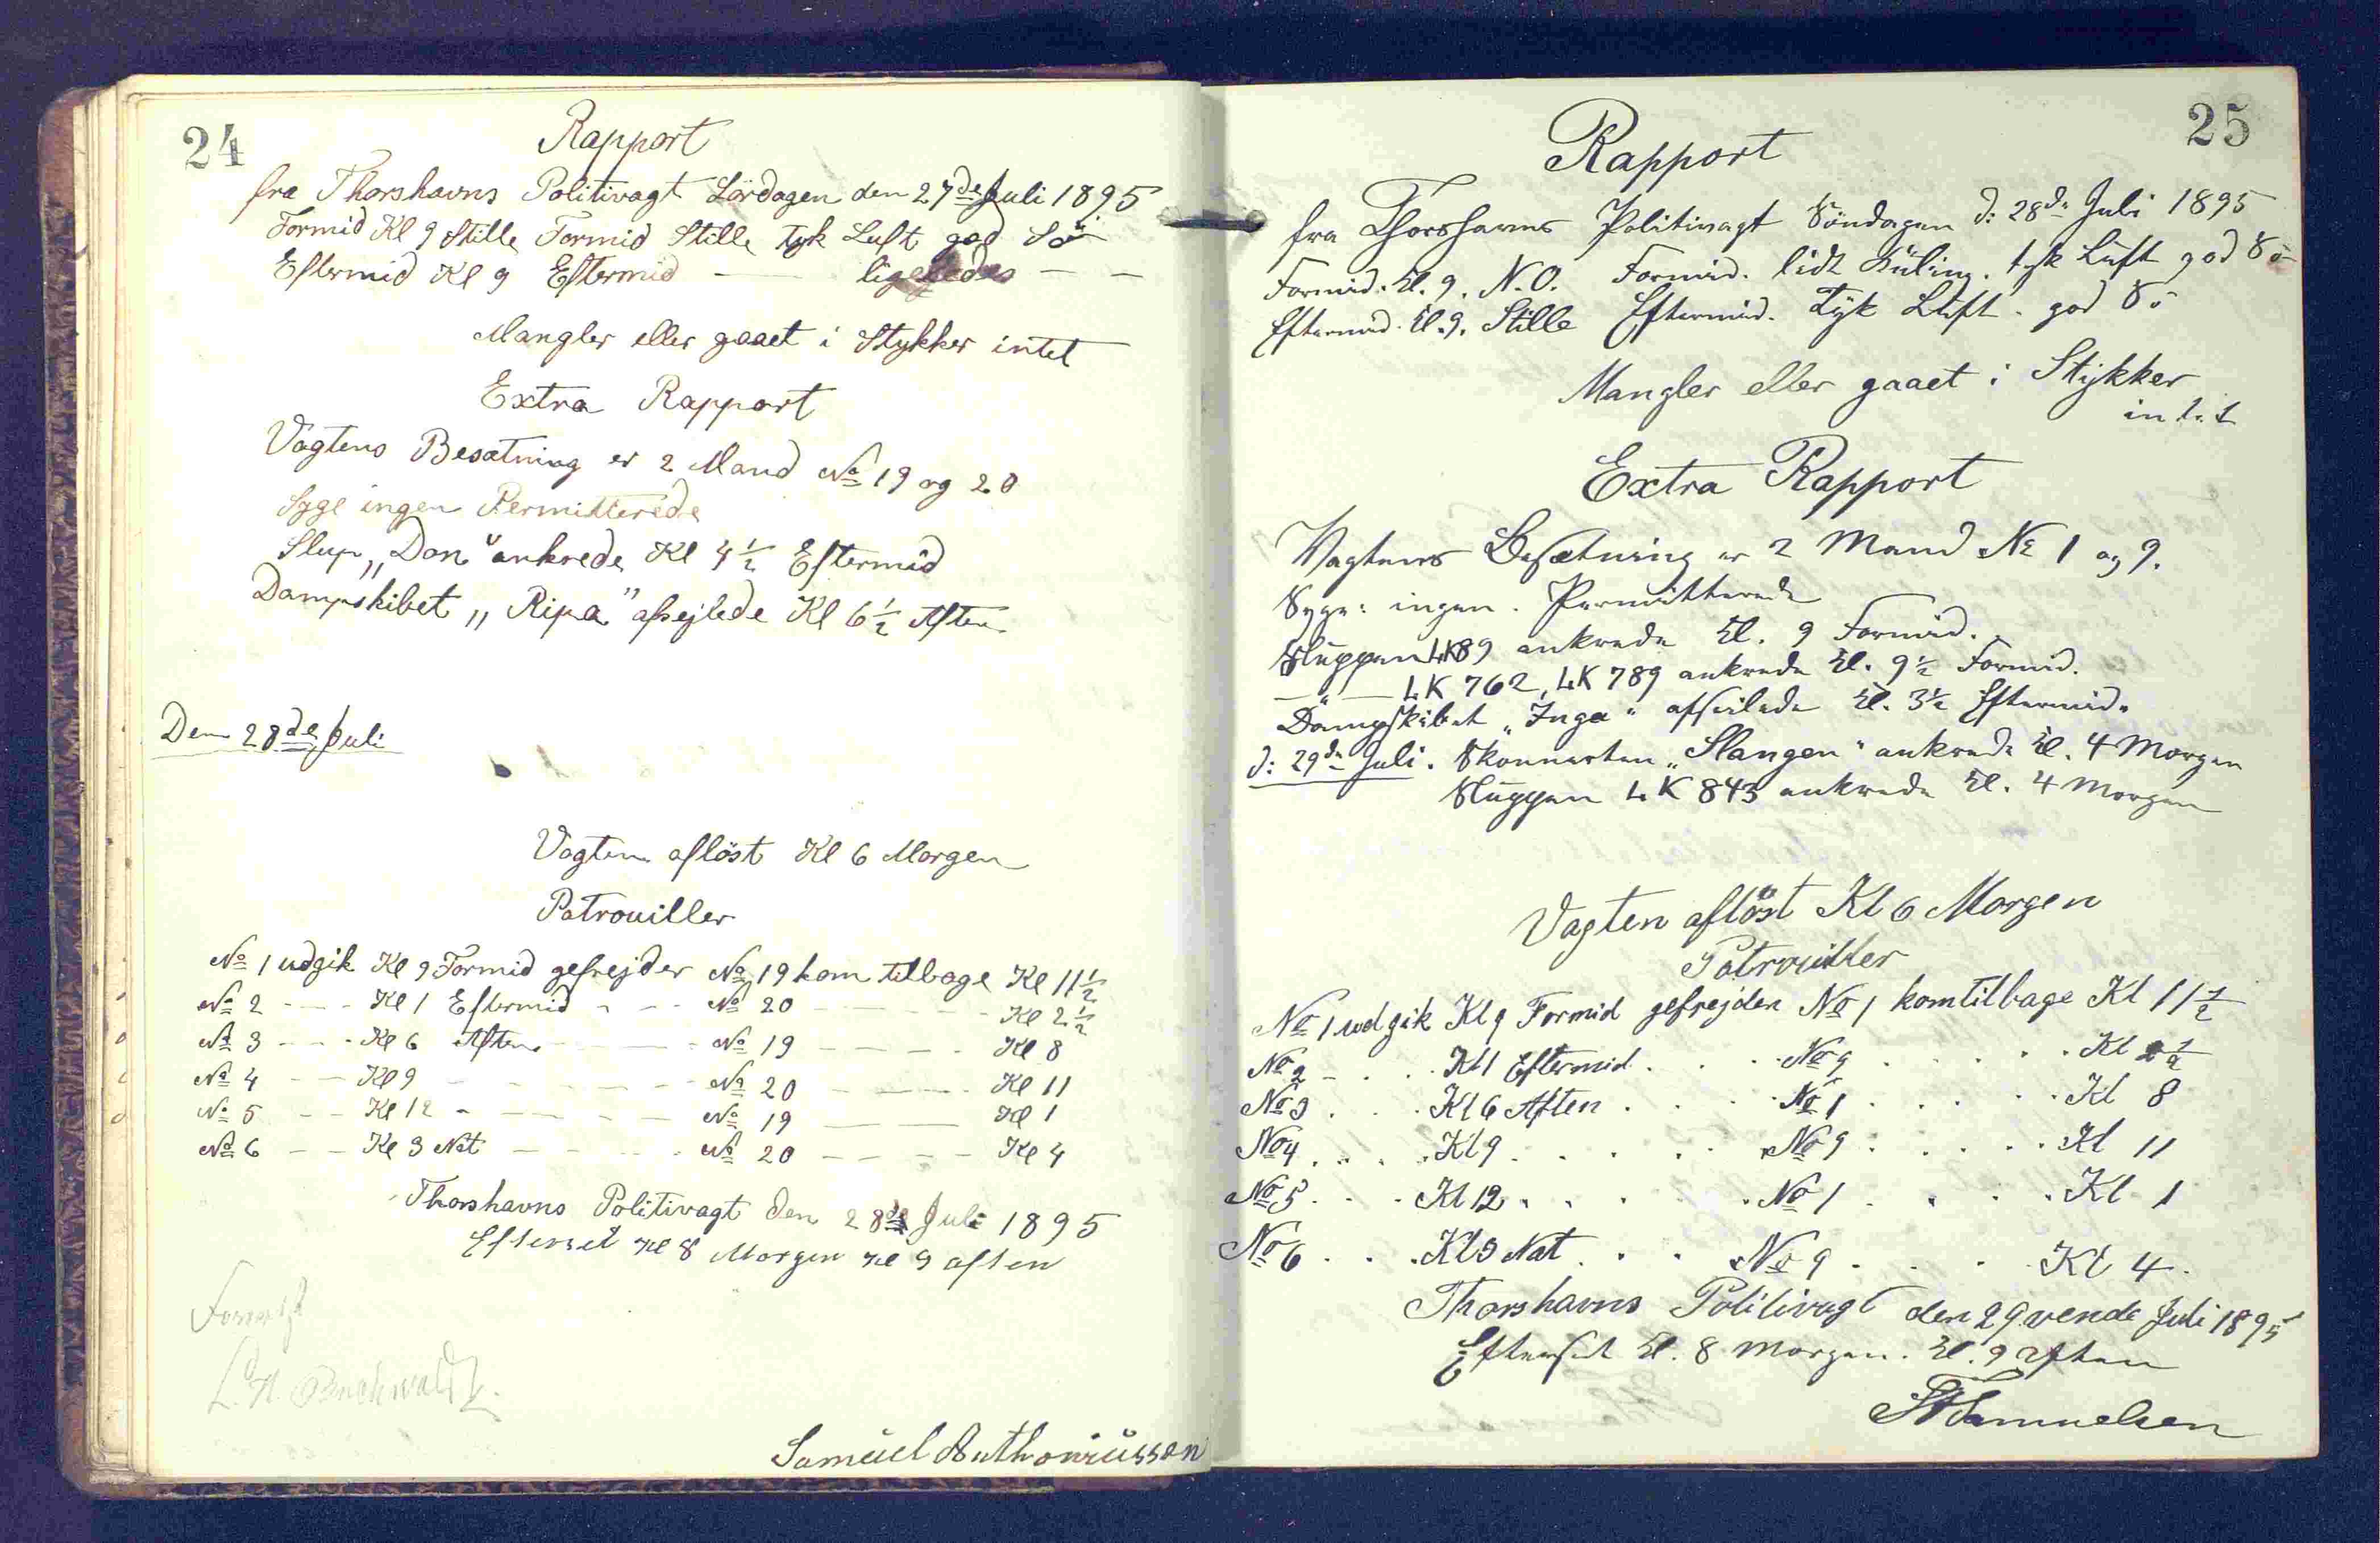 24
Rapport
fra Thorshavns Politivagt Lördagen den 27de Juli 1895
Formid Kl 9 Stille Formid Stille tyk Luft god Sö
Eftermid Kl 9 Eftermid — ligeledes — —
Mangler eller gaaet i Stykker intet
Extra Rapport
Vagtens Besætning er 2 Mand No 19 og 20
Syge ingen Permitterede
Slup „Dan" ankrede Kl 4½ Eftermid
Dampskibet „Ripa" afsejlede Kl 6½ Aften
Den 28de Juli
Vagten aflöst Kl 6 Morgen
Patrouiller
No 1 udgik Kl 9 Formid gefrejder No 19 kom tilbage Kl 11½
No 2 - - - Kl 1 Eftermid - - - No 20 - - - - Kl 2½
No 3 - - - Kl 6 Aften - - - No 19 - - - - Kl 8
No 4 - - Kl 9 - - - - - No 20 - - - - Kl 11
No 5 - - Kl 12 - - - - - No 19 - - - Kl 1
No 6 - - Kl 3 Nat - - - - No 20 - - - - Kl 4
Thorshavns Politivagt den 28de Juli 1895
Efterset Kl 8 Morgen Kl 9 aften
L. H. Buchwaldt.
Samuel Anthoniussen
25
Rapport
fra Thorshavns Politivagt Söndagen d: 28de Juli 1895
Formid. Kl. 9. N.O. Formid. lidt Kuling. tyk Luft god Sö
Eftermid. Kl. 9. Stille Eftermid. Tyk Luft. god Sö
Mangler eller gaaet i Stykker
intet
Extra Rapport
Vagtens Besætning er 2 Mand No 1 og 9.
Syge: ingen. Permitterede
Sluppen LK89 ankrede Kl. 9 Formid.
— " — LK 762, LK 789 ankrede Kl. 9½ Formid.
Dampskibet „Inga" afseilede Kl. 3½ Eftermid.
d: 29de Juli. Skonnerten „Slangen" ankrede Kl. 4 Morgen
Sluppen LK 843 ankrede Kl. 4 Morgen
Vagten aflöst Kl 6 Morgen
Patrouiller
No 1 udgik Kl 9 Formid gefrejder No 1 kom tilbage Kl 11½
No 2 - . . Kl 1 Eftermid . . . No 9 . . . . . Kl 2½
No 3 . . . Kl 6 Aften . . . No 1 . . . . . Kl 8
No 4 . . . . Kl 9 . . . . . No 9 . . . . . Kl 11
No 5 . . . Kl 12 . . . . . No 1 . . . . Kl 1
No 6 . . . Kl 3 Nat . . . No 9 . . . Kl 4.
Thorshavns Politivagt den 29vende Juli 1895
Efterset Kl. 8 Morgen. Kl. 9 Aften
Samuelsen